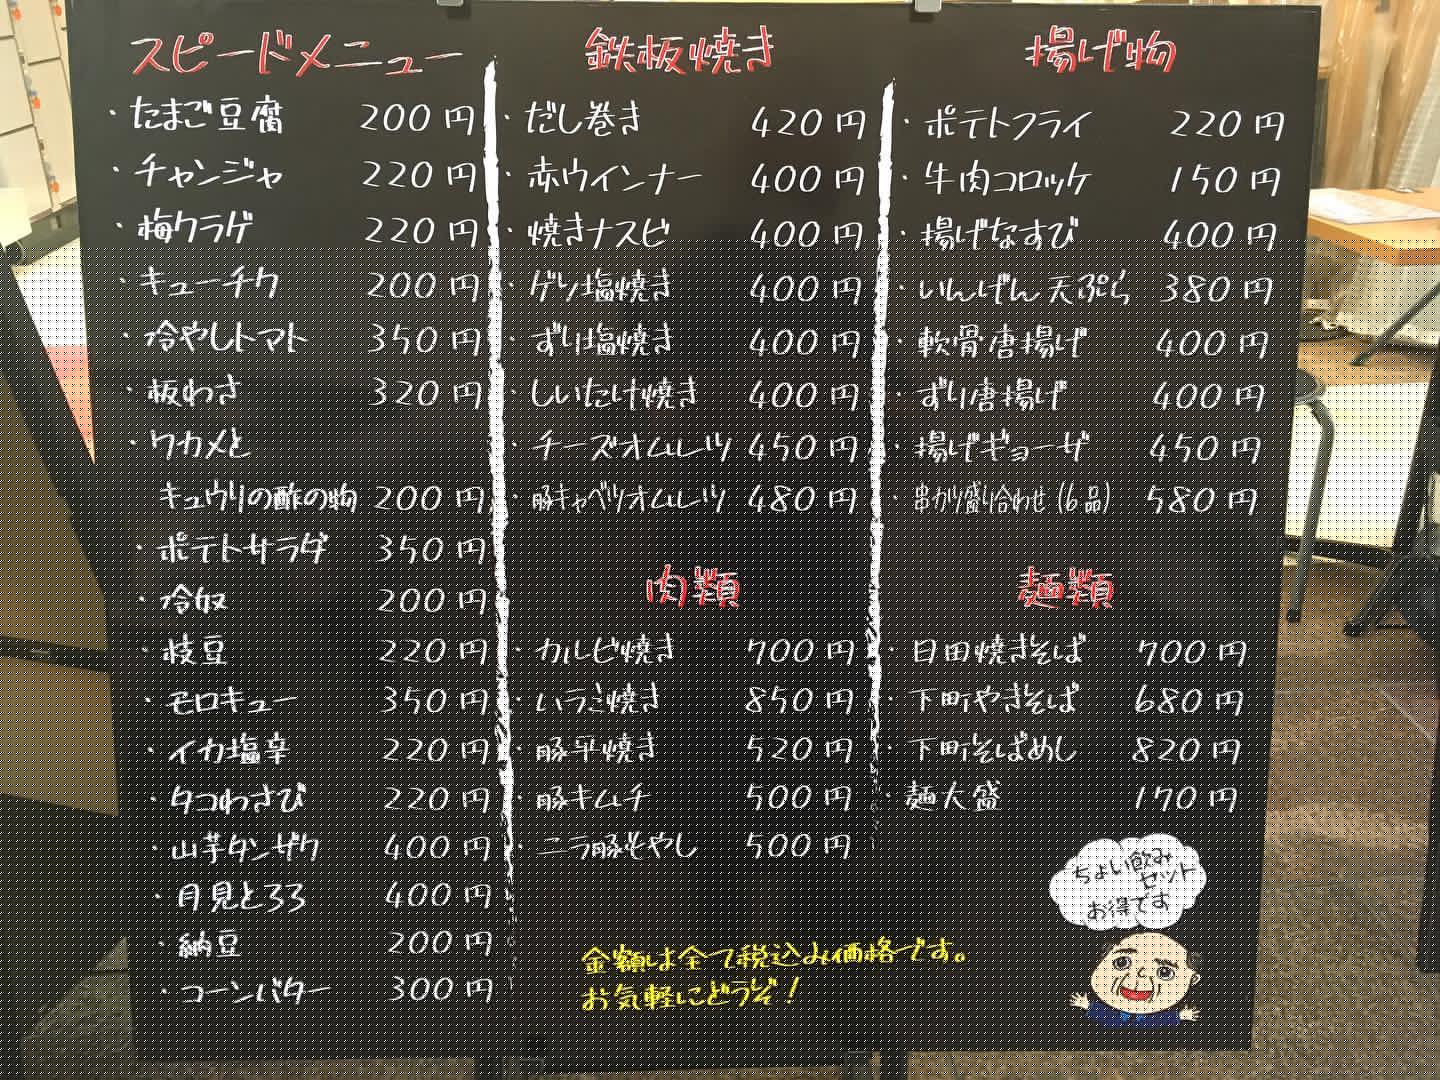 スピードメニュー
・たまご豆腐 200円
・チャンジャ 220円
・梅クラゲ 220円
・キューチク 200円
・冷やしトマト 350円
・板わさ 320円
・ワカメと
キュウリの酢の物 200円
・ポテトサラダ 350円
・冷奴 200円
・枝豆 220円
・モロキュー 350円
・イカ塩辛 220円
・タコわさび 220円
・山芋タンザク 400円
・月見とろろ 400円
・納豆 200円
・コーンバター 300円
鉄板焼き
・だし巻き 420円
・赤ウインナー 400円
・焼きナスビ 400円
・ゲソ塩焼き 400円
・ずり塩焼き 400円
・しいたけ焼き 400円
・チーズオムレツ 450円
・豚キャベツオムレツ 480円
肉類
・カルビ焼き 700円
・いラご焼き 850円
・豚平焼き 520円
・豚キムチ 500円
・ニラ豚もやし 500円
揚げ物
・ポテトフライ 220円
・牛肉コロッケ 150円
・揚げなすび 400円
・いんげん天ぷら 380円
・軟骨唐揚げ 400円
・ずり唐揚げ 400円
・揚げギョーザ 450円
・串カツ盛り合わせ(6品) 580円
麺類
・日田焼きそば 700円
・下町やきそば 680円
・下町そばめし 820円
・麺大盛 170円
ちょい飲み
セット
お得です
金額は全て税込み価格です。
お気軽にどうぞ!